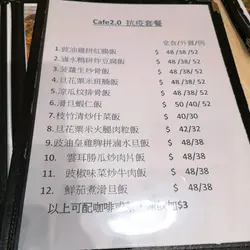 Cafe2.0 抗疫套餐
堂食/外賣/純
1. 豉油雞拼紅腸飯 $ 48/38/52
2. 滷水鴨拼炸豆腐飯 $ 48/38/52
3. 菠蘿生炒骨飯 $ 48/38/52
4. 旦花粟米斑腩飯 $ 48/38/52
5. 涼瓜炆排骨飯 $ 48/38/52
6. 滑旦蝦仁飯 $ 50/40/52
7. 枝竹清炒什菜飯 $ 40/30
8. 旦花粟米火腿肉粒飯 $ 42/32
9. 豉油皇雞髀拼滷水旦飯 $ 48/38
10. 雲耳勝瓜炒肉片飯 $ 48/38
11. 豉椒味菜炒牛肉飯 $ 48/38
12. 鮮茄煮滑旦飯 $ 48/38
以上可配咖啡或 加$3